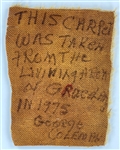 THIS CARPET
WAS TAKEN
FROM THE
LIVING ROOM
OF GRACELAND
IN 1975
GEORGE
COLEMAN